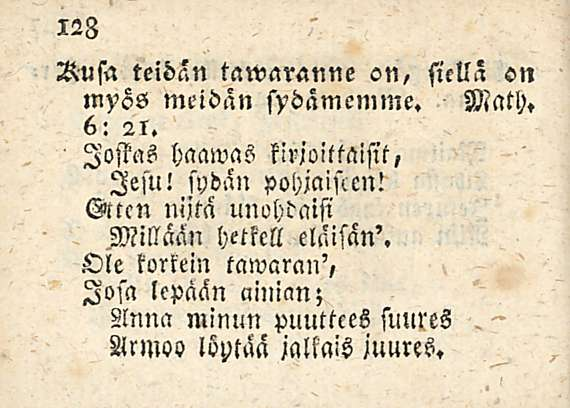 128
Kusa teidän tawaranne on, siellä on
myös meidän sydämemme. Math.
6: 21.
Joskas haawas kirjoittaisit,
Jesu! sydän pohjaiseen!
Etten niitä unohdaisi
Millään hetkell eläisän'.
Ole korkein tawaran',
Josa lepään ainian;
Anna minun puuttees suures
Armoo löytää jalkais juures.